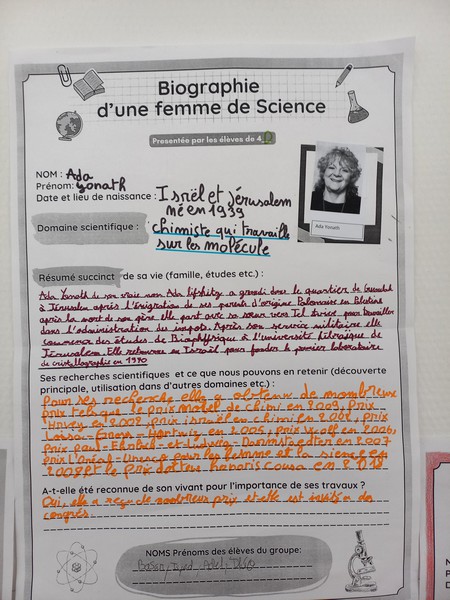 Biographie
d'une femme de Science
Présentée par les élèves de 4
NOM : Ada
Prénom: Yonath
Date et lieu de naissance : Isrël et Jérusalem
né en 1939
Domaine scientifique : chimiste qui travaille
sur les molécule
Ada Yonath
Résumé succinct de sa vie (famille, études etc.) :
Ada Yonath de son vraie nom Ada Lifshitz a grandi dans le quartier de
à Jérusalem après l'émigration de ses parents d'origine Polonaise en Palestine
après la mort de son père elle part avec sa sœur vers Tel Aviv pour travailler
dans l'administration des impots. Après son service militaire elle
commence des études de Biophysique à l'université hébraïque de
Jérusalem. Elle retourne en Israël pour fonder le premier laboratoire
de cristallographie en 1970
Ses recherches scientifiques et ce que nous pouvons en retenir (découverte
principale, utilisation dans d'autres domaines etc.) :
Pour ses recherche elle a obtenu de nombreux
prix tels que le prix Nobel de chimi en 2009, Prix
Harvey en 2002, prix en chimi en 2002, Prix
en 2005, prix wolf en 2006,
prix Paul Ehrlich et Ludwig-Darmstaedter en 2007
prix l'Oréal-Unesco pour les femme et la science en
2008 et le prix docteur honoris causa en 2018
A-t-elle été reconnue de son vivant pour l'importance de ses travaux ?
Oui, elle a reçu de nombreux prix et elle est invitée a des
congrès
NOMS Prénoms des élèves du groupe: